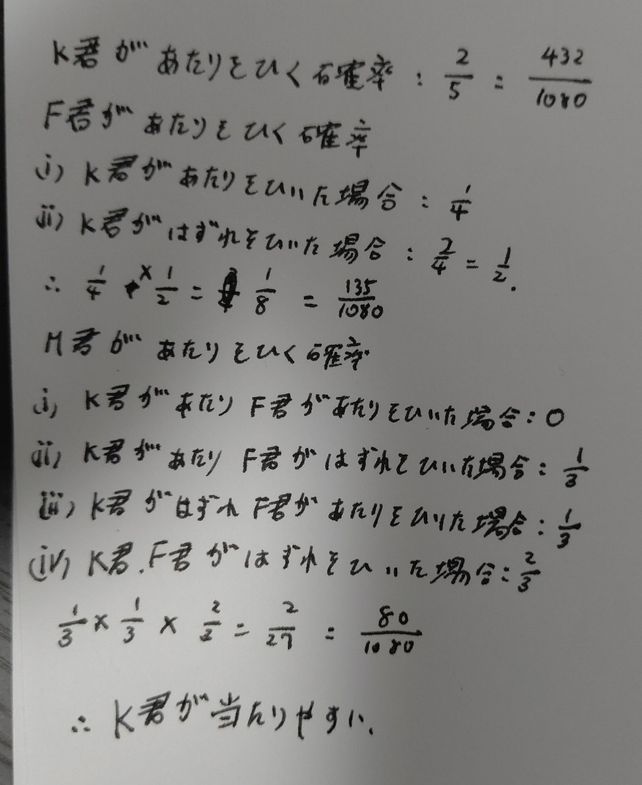 K君があたりをひく確率：2/5 = 432/1080
F君があたりをひく確率
i) K君があたりをひいた場合：1/4
ii) K君がはずれをひいた場合：2/4 = 1/2.
∴ 1/4 × 1/2 = 1/8 = 135/1080
M君があたりをひく確率
i) K君があたり F君があたりをひいた場合：0
ii) K君があたり F君がはずれをひいた場合：1/3
iii) K君がはずれ F君があたりをひいた場合：1/3
(iv) K君.F君がはずれをひいた場合：2/3
1/3 × 1/3 × 2/3 = 2/27 = 80/1080
∴ K君が当たりやすい.